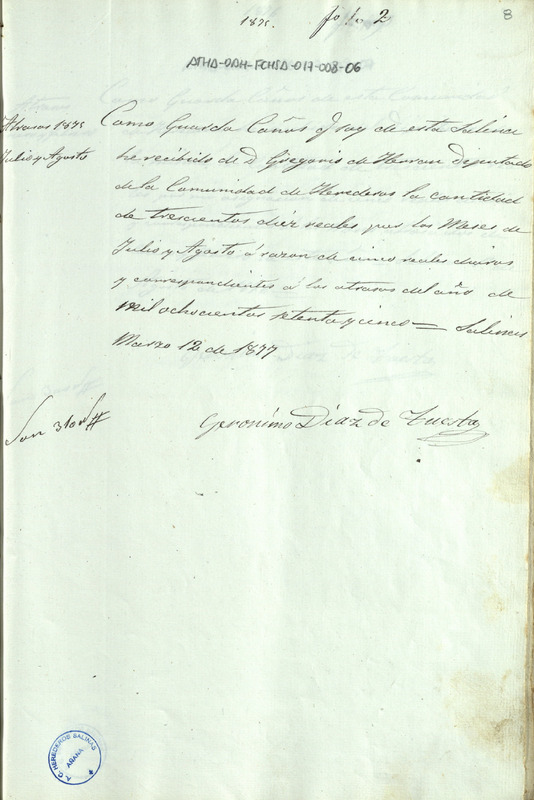 1875.
folio 2
8
ATHA-DAH-FCHSA-017-008-06
Atrasos 1875
Julio y Agosto
Como Guarda Caños q soy de esta Salina
he recibido de D Gregorio de Herran Deputado
de la Comunidad de Herederos la cantidad
de trescientos diez reales por los Meses de
Julio y Agosto á razon de cinco reales diarios
y correspondientes á los atrasos del año de
mil ochocientos setenta y cinco = Salinas
Marzo 12 de 1877
Son 310
Geronimo Diaz de Tuesta
A. C. HEREDEROS SALINAS
AÑANA